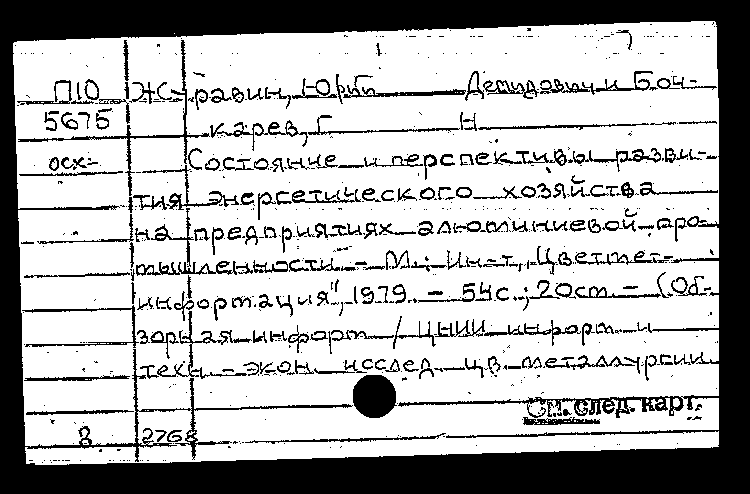 П10 Журавин, Юрий Демидович и Боч-
5675 карев, Г. Н
осх- Состояние и перспективы разви-
тия энергетического хозяйства
на предприятиях алюминиевой про-
мышленности - М.: Ин-т „Цветмет-
информация", 1979. - 54с.; 20см. - (Об-
зорная информ / ЦНИИ информ и
техн.-экон. исслед. цв. металлургии
См. след. карт.
8 2768